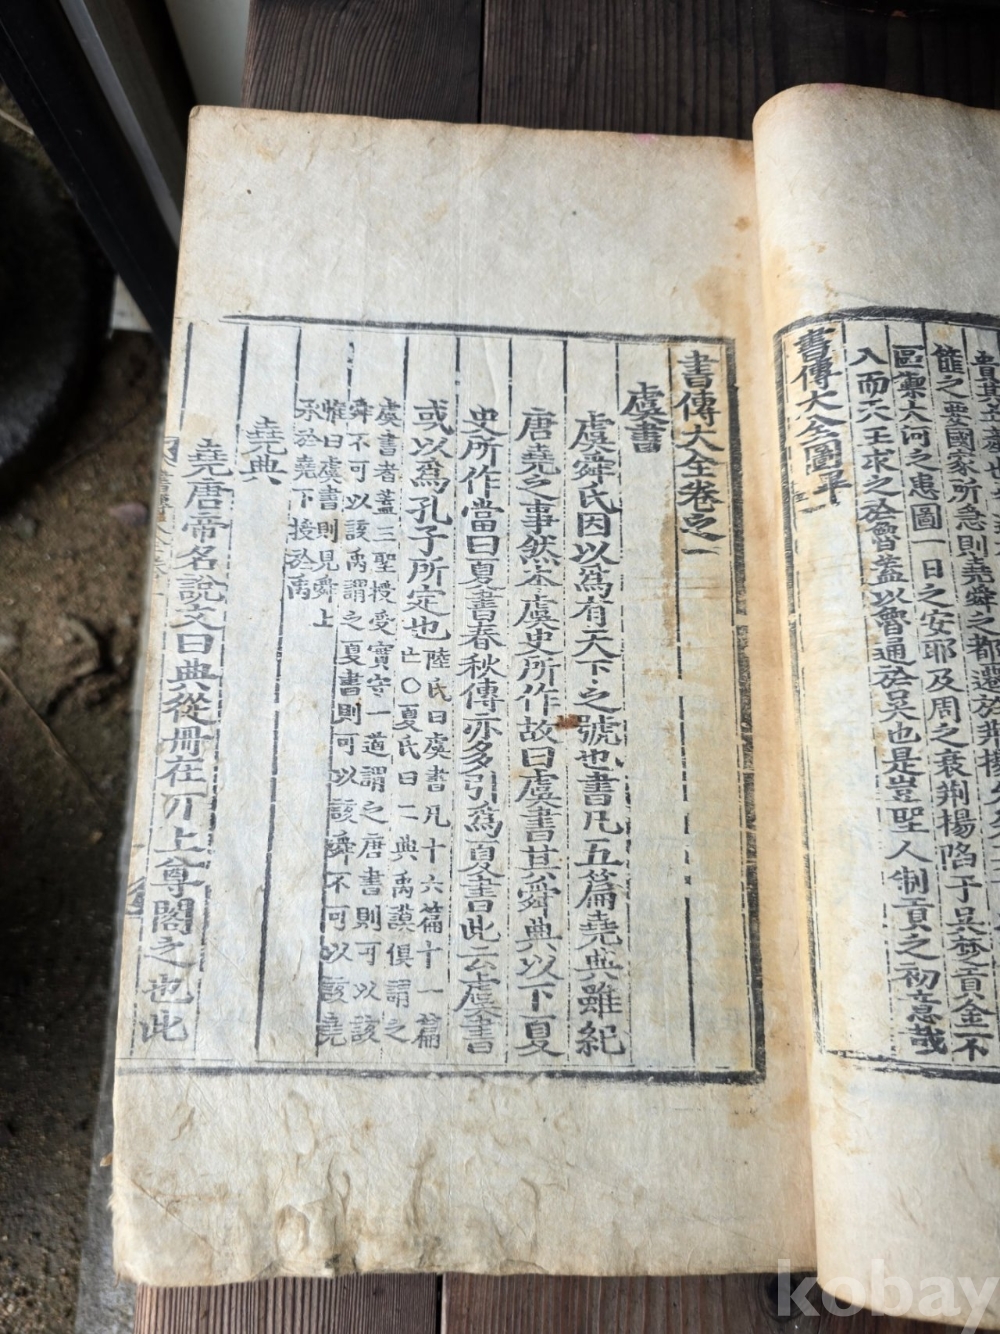 篚之要國家所急則堯舜之都還於荊楊
區區禦大河之患圖一日之安耶及周之衰荊楊陷于吳楚貢金不
入而六王求之於魯蓋以魯通於吳也是豈聖人制貢之初意哉
書傳大全圖畢
書傳大全卷之一
虞書
虞舜氏因以爲有天下之號也書凡五篇堯典雖紀
唐堯之事然本虞史所作故曰虞書其舜典以下夏
史所作當曰夏書春秋傳亦多引爲夏書此云虞書
或以爲孔子所定也
陸氏曰虞書凡十六篇十一篇
亡○夏氏曰二典禹謨俱謂之
虞書者蓋三聖授受實守一道謂之唐書則可以該
舜不可以該禹謂之夏書則可以該舜不可以該堯
惟曰虞書則見舜上
承於堯下授於禹
堯典
堯唐帝名說文曰典從冊在丌上尊閣之也此
kobay